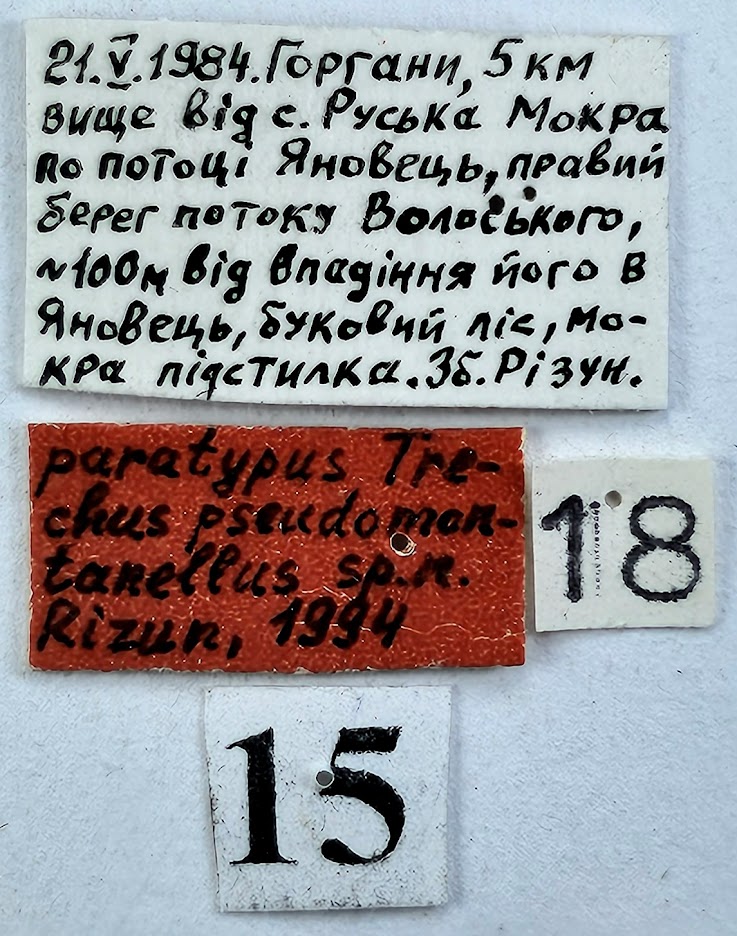 21.V.1984. Горгани, 5 км
вище від с. Руська Мокра
по потоці Яновець, правий
берег потоку Волоського,
~100м від впадіння його в
Яновець, буковий ліс, мо-
кра підстилка. Зб. Різун.
paratypus Tre-
chus pseudomon-
tanellus sp.n.
Rizun, 1994
18
15